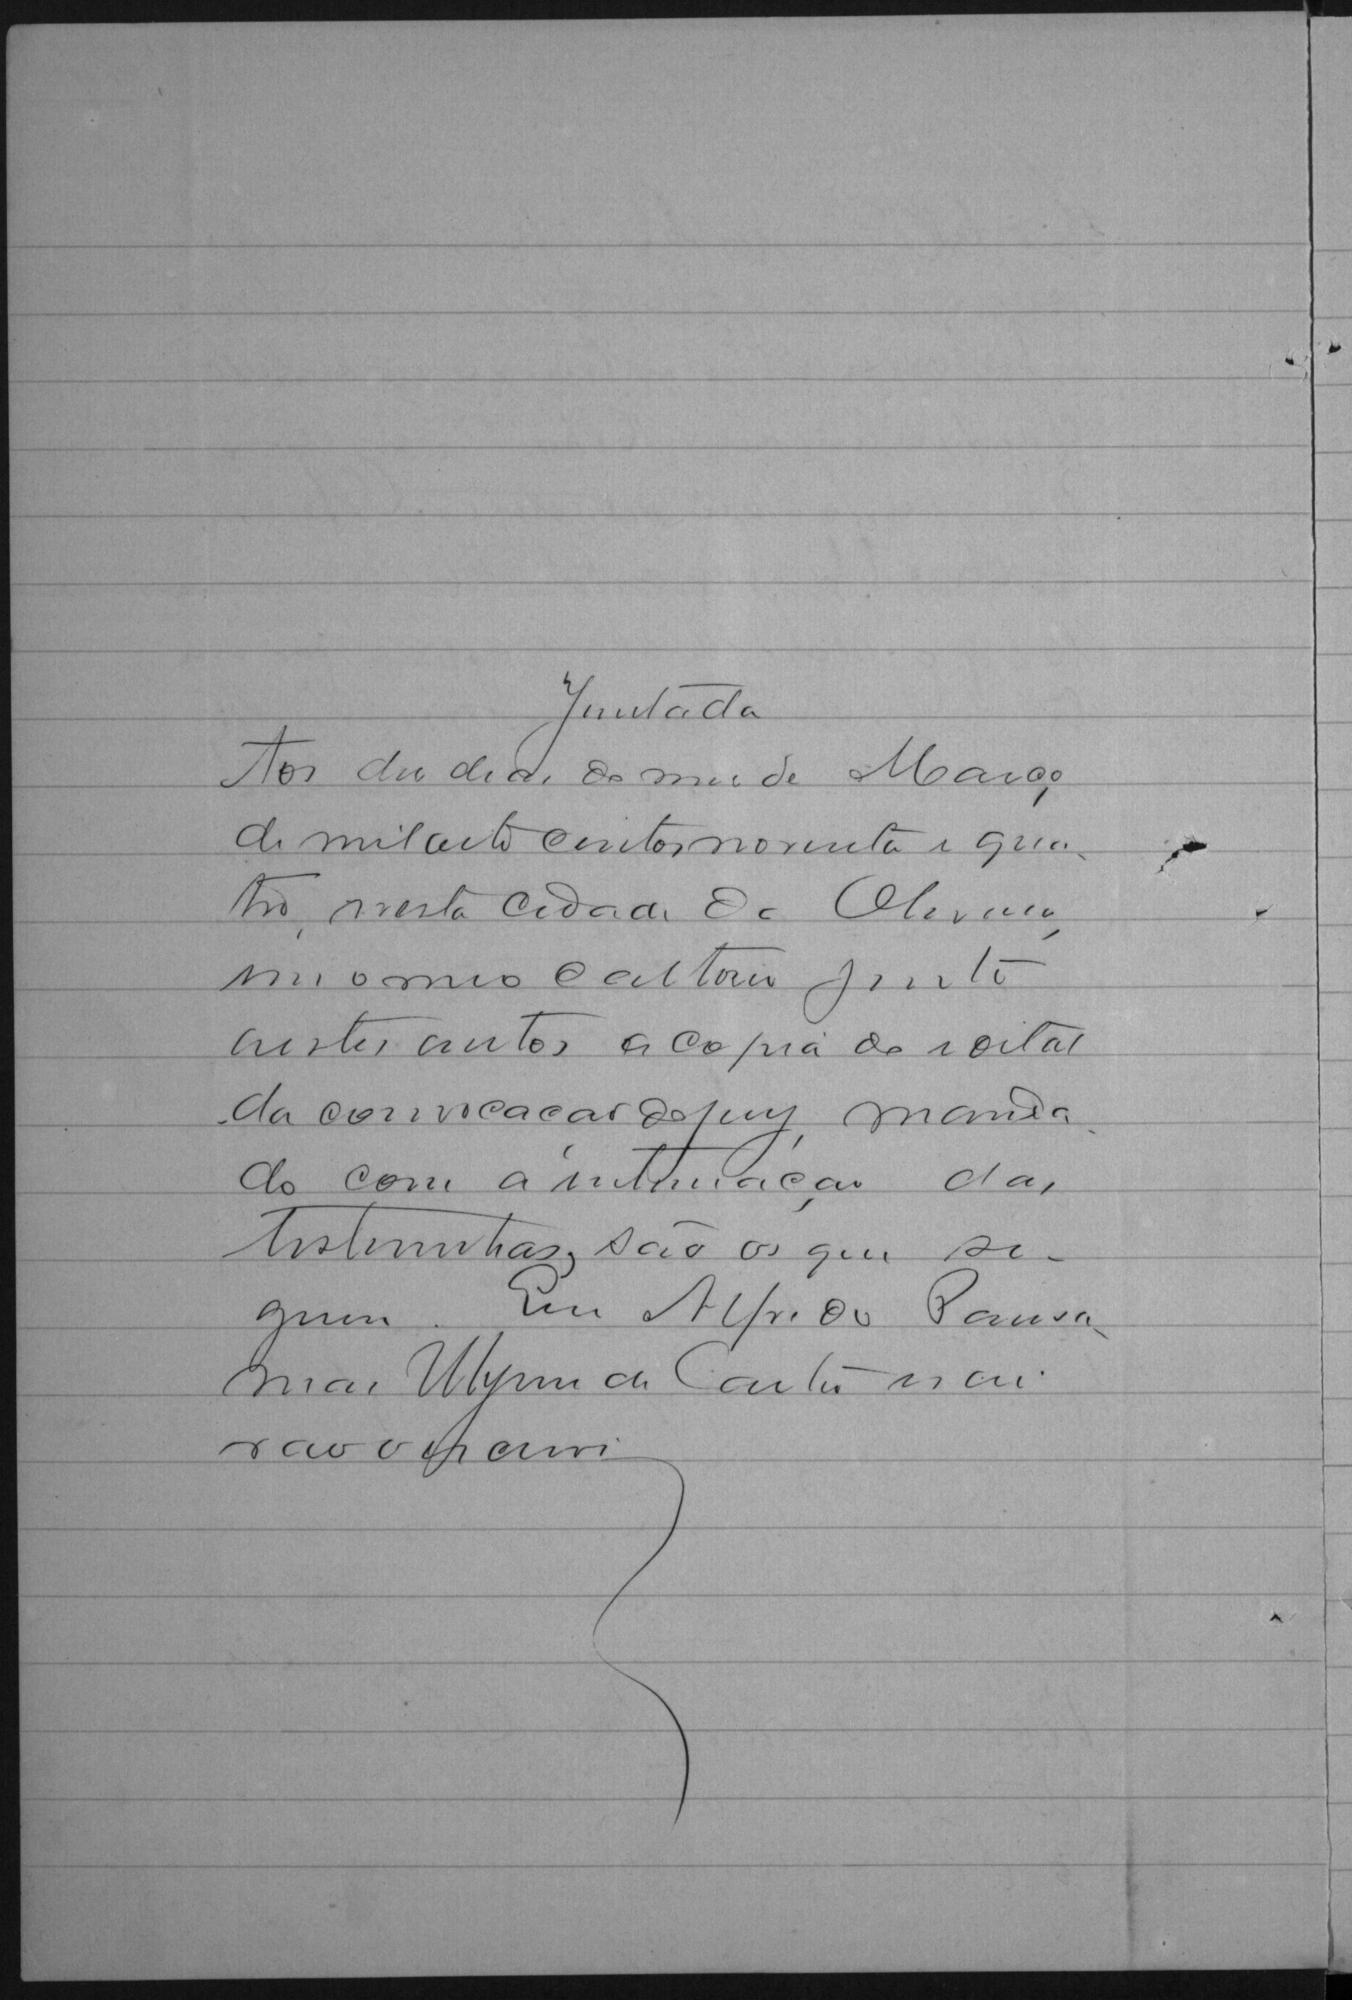 Juntada
Aos dez dias do mez de Março
de mil oito centos noventa e qua-
tro, nesta cidade de Oliveira,
em o meo cartorio junto
nestes autos a copia do edital
da convocação do jury, manda-
do com a intimação das
testemunhas, são os que se-
guem. Eu Alfredo Pausa-
nias de Castro escri-
vão o escrevi